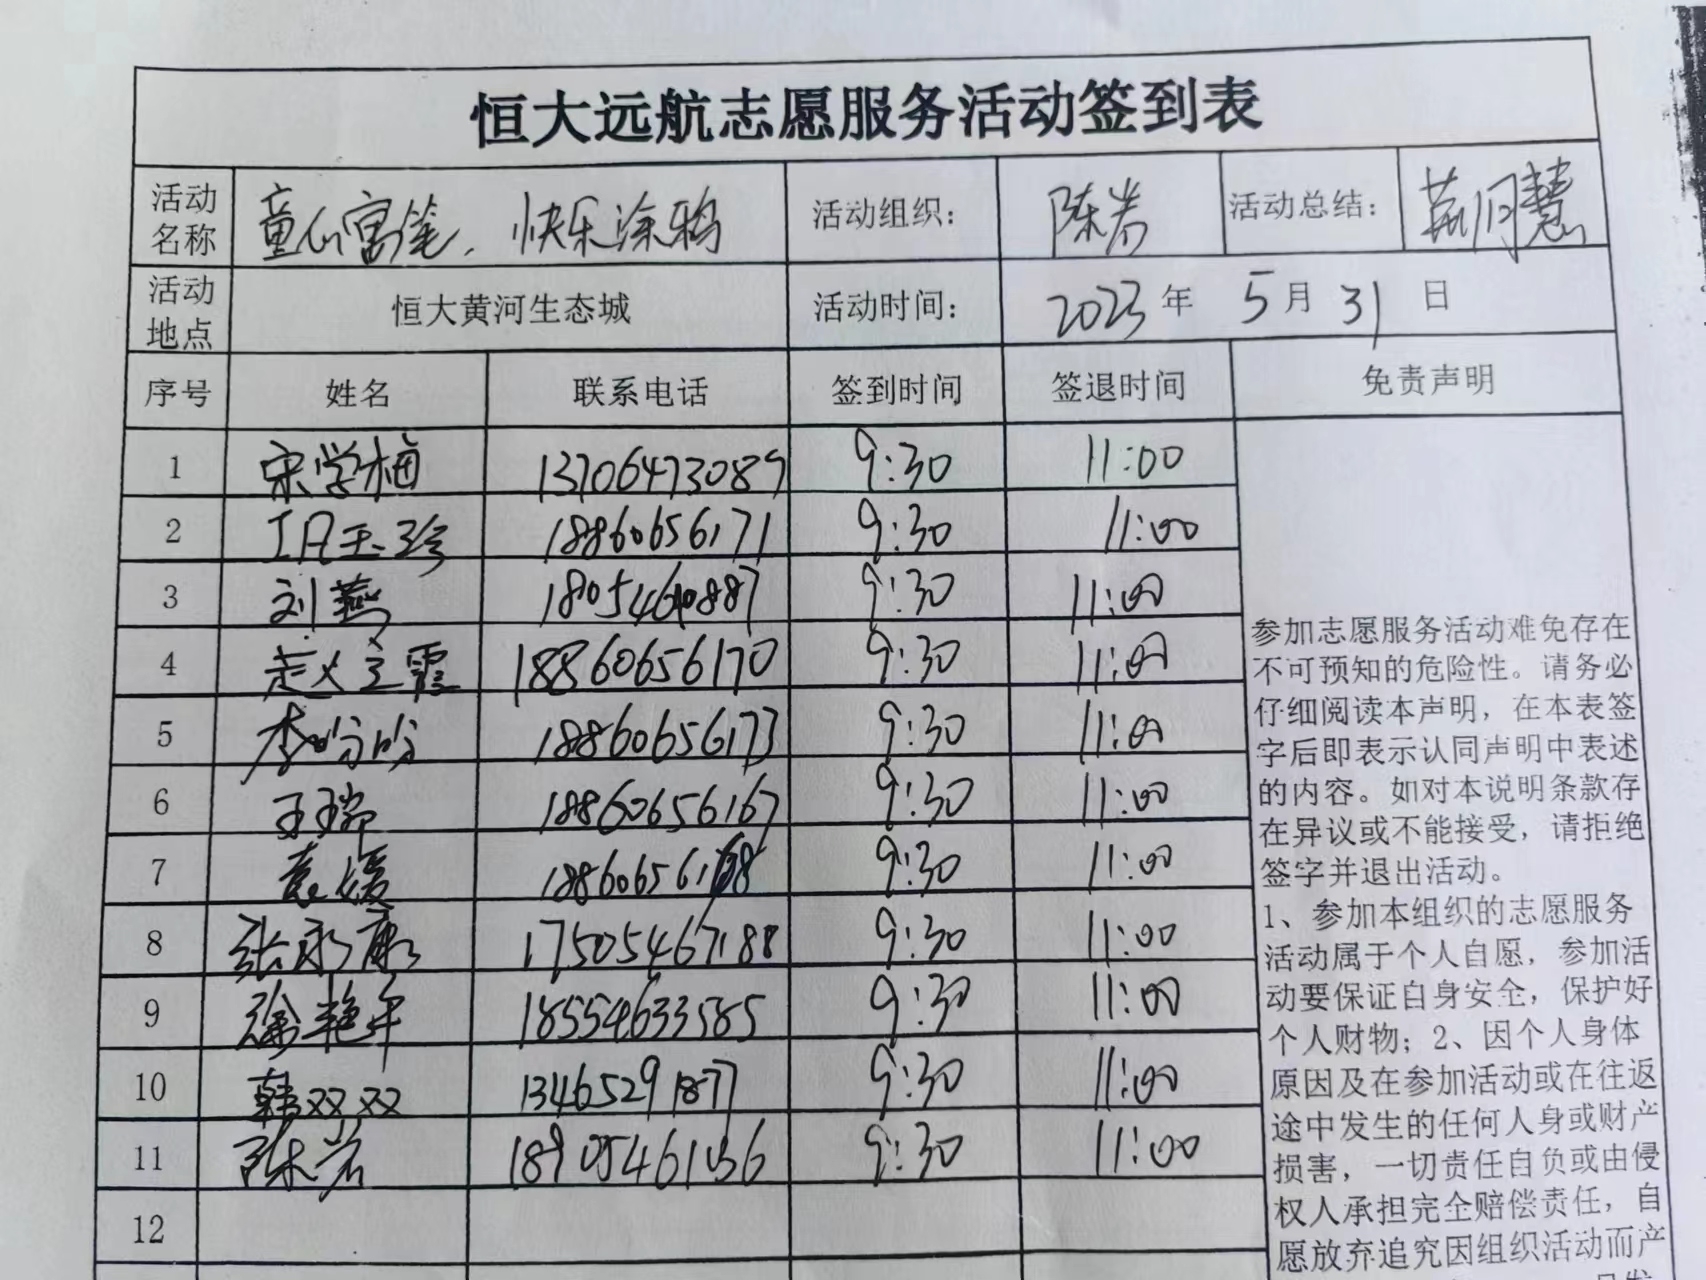 恒大远航志愿服务活动签到表
活动名称 童心寓笔，快乐涂鸦 活动组织： 陈岩 活动总结： 荆月慧
活动地点 恒大黄河生态城 活动时间： 2023年 5月 31日
序号 姓名 联系电话 签到时间 签退时间 免责声明
1 宋学梅 13706473089 9:30 11:00
2 玉珍 18860656171 9:30 11:00
3 刘燕 9:30 11:00
4 赵文霞 18860656170 9:30 11:00
5 李盼盼 18860656173 9:30 11:00
6 王瑞 18860656167 9:30 11:00
7 袁媛 18860656168 9:30 11:00
8 张永康 17505467188 9:30 11:00
9 徐艳华 18554633585 9:30 11:00
10 韩双双 13465291877 9:30 11:00
11 陈岩 18905461036 9:30 11:00
12
参加志愿服务活动难免存在
不可预知的危险性。请务必
仔细阅读本声明，在本表签
字后即表示认同声明中表述
的内容。如对本说明条款存
在异议或不能接受，请拒绝
签字并退出活动。
1、参加本组织的志愿服务
活动属于个人自愿，参加活
动要保证自身安全，保护好
个人财物；2、因个人身体
原因及在参加活动或在往返
途中发生的任何人身或财产
损害，一切责任自负或由侵
权人承担完全赔偿责任，自
愿放弃追究因组织活动而产